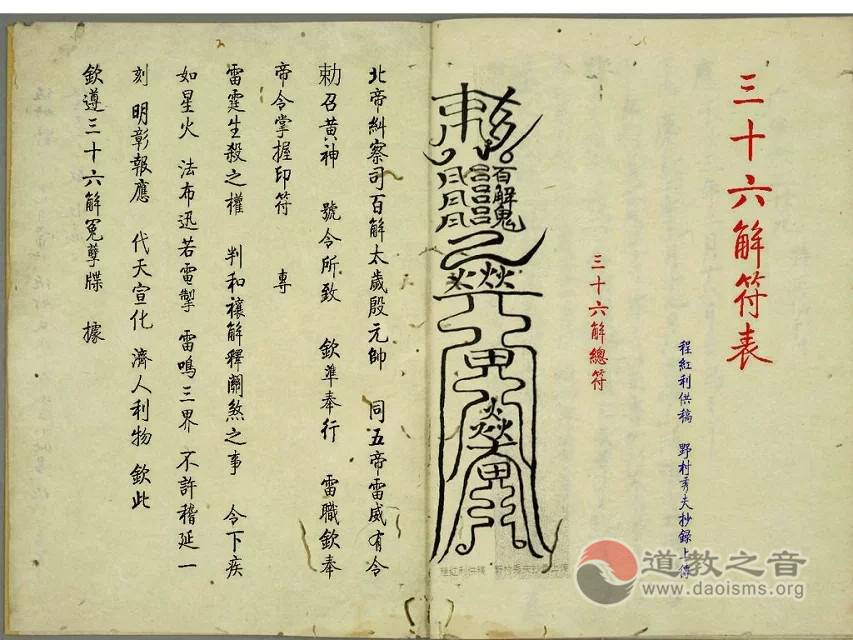 三十六解符表
程紅利供稿 野村秀夫抄録上傳
三十六解總符
百解鬼
北帝糾察司百解太歲殷元帥 同五帝雷威有令
勅召黃神 號令所致 欽準奉行 雷職欽奉
帝令掌握印符 專
雷霆生殺之權 判和禳解釋關煞之事 令下疾
如星火 法布迅若電掣 雷鳴三界 不許稽延一
刻 明彰報應 代天宣化 濟人利物 欽此
欽遵三十六解冤孽牒 據
道教之音
www.daoisms.org